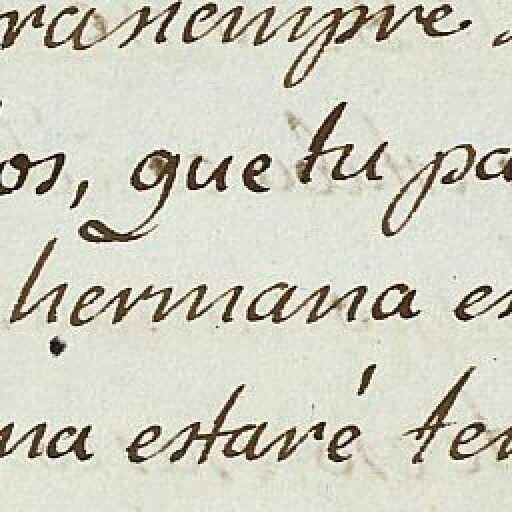 rasiempre
os, que tu pa
hermana es
na estaré ten